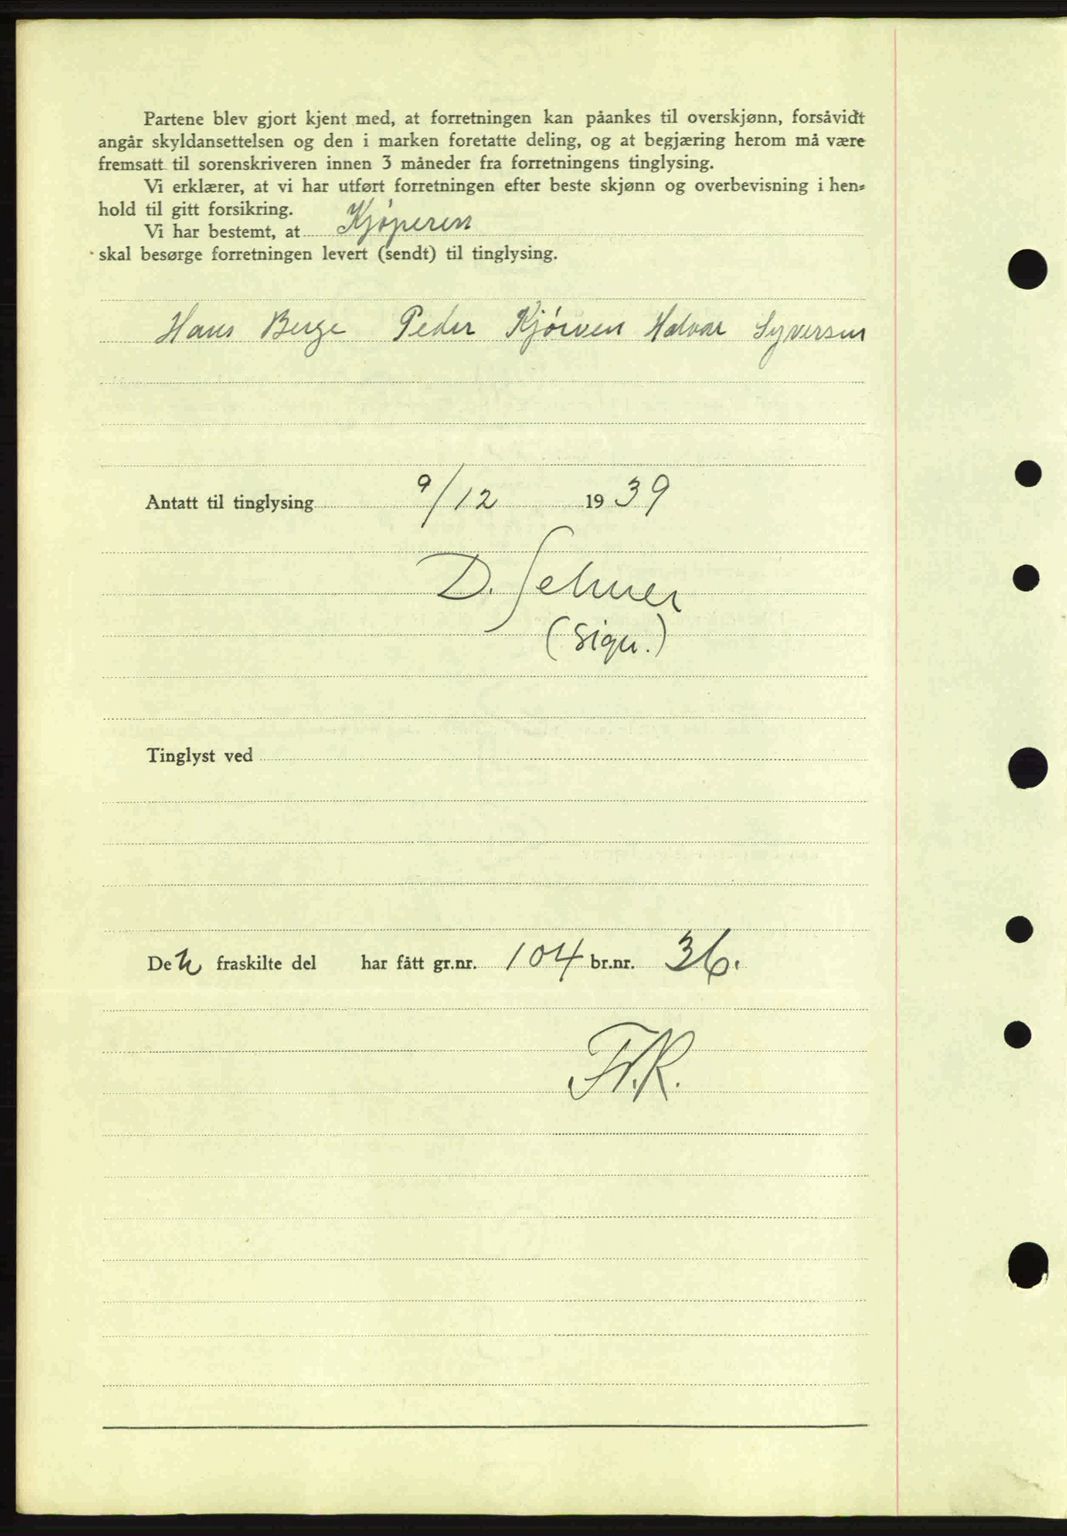 Partene blev gjort kjent med, at forretningen kan påankes til overskjønn, forsåvidt
angår skyldansettelsen og den i marken foretatte deling, og at begjæring herom må være
fremsatt til sorenskriveren innen 3 måneder fra forretningens tinglysing.
Vi erklærer, at vi har utført forretningen efter beste skjønn og overbevisning i hen-
hold til gitt forsikring.
Vi har bestemt, at Kjøperen
skal besørge forretningen levert (sendt) til tinglysing.
Hans Berge Peder Kjørven Halvar Syversen
Antatt til tinglysing 9/12 1939
D. Selmer
(sign.)
Tinglyst ved
Den fraskilte del har fått gr.nr. 104 br.nr. 36.
Fr.R.